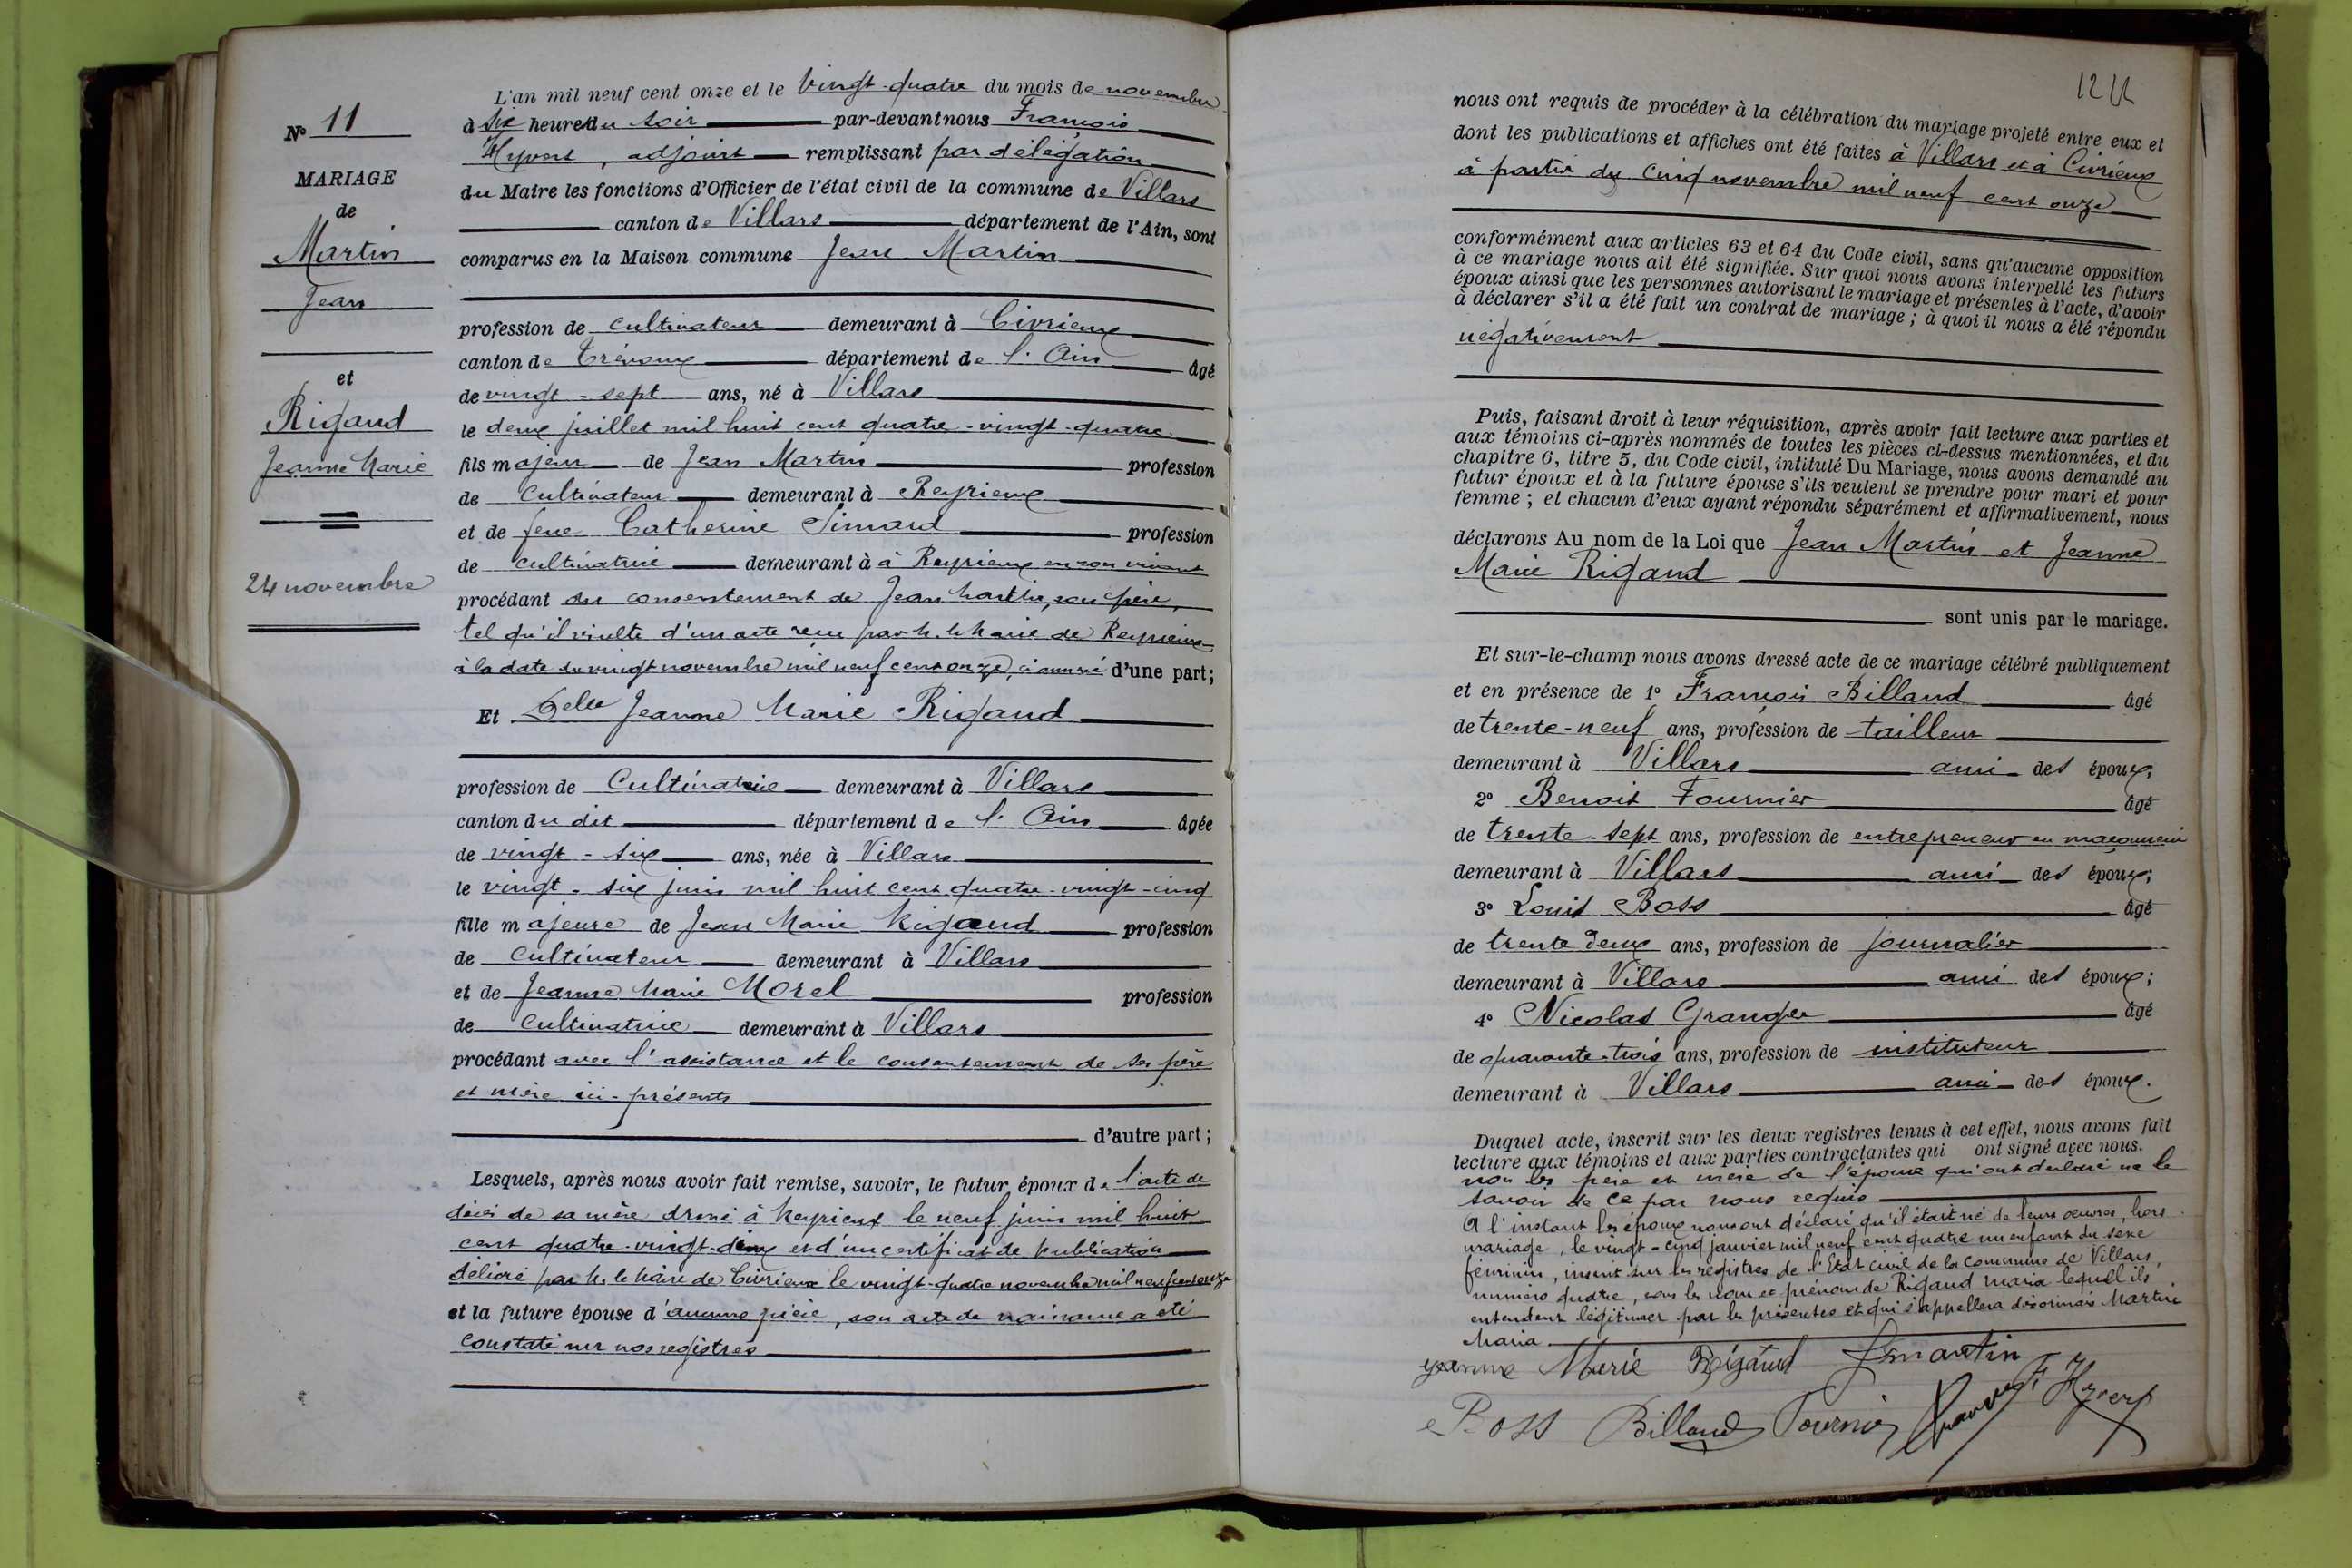 N° 11
MARIAGE
de
Martin
Jean
et
Rigaud
Jeanne Marie
24 novembre
L'an mil neuf cent onze et le vingt-quatre du mois de novembre
à six heures du soir par-devant nous François
Hyvert, adjoint remplissant par délégation
du Maire les fonctions d'Officier de l'état civil de la commune de Villars
canton de Villars département de l'Ain, sont
comparus en la Maison commune Jean Martin
profession de cultivateur demeurant à Civrieux
canton de Trévoux département de l'Ain âgé
de vingt-sept ans, né à Villars
le deux juillet mil huit cent quatre-vingt-quatre
fils majeur de Jean Martin profession
de cultivateur demeurant à Reyrieux
et de feue Catherine Simard profession
de cultivatrice demeurant à à Reyrieux en son vivant
procédant du consentement de Jean Martin, son père,
tel qu'il résulte d'un acte reçu par M. le Maire de Reyrieux
à la date du vingt novembre mil neuf cent onze, ci annexé d'une part;
Et Delle Jeanne Marie Rigaud
profession de Cultivatrice demeurant à Villars
canton du dit département de l'Ain âgée
de vingt-six ans, née à Villars
le vingt-six juin mil huit cent quatre-vingt-cinq
fille majeure de Jean Marie Rigaud profession
de cultivateur demeurant à Villars
et de Jeanne Marie Morel profession
de cultivatrice demeurant à Villars
procédant avec l'assistance et le consentement de ses père
et mère ici-présents
d'autre part;
Lesquels, après nous avoir fait remise, savoir, le futur époux de l'acte de
décès de sa mère dressé à Reyrieux le neuf juin mil huit
cent quatre-vingt-dix et d'un certificat de publication
délivré par M. le Maire de Civrieux le vingt-quatre novembre mil neuf cent onze
et la future épouse d'aucune pièce, son acte de naissance a été
constaté sur nos registres
nous ont requis de procéder à la célébration du mariage projeté entre eux et
dont les publications et affiches ont été faites à Villars et à Civrieux
à partir du cinq novembre mil neuf cent onze
conformément aux articles 63 et 64 du Code civil, sans qu'aucune opposition
à ce mariage nous ait été signifiée. Sur quoi nous avons interpellé les futurs
époux ainsi que les personnes autorisant le mariage et présentes à l'acte, d'avoir
à déclarer s'il a été fait un contrat de mariage; à quoi il nous a été répondu
négativement
Puis, faisant droit à leur réquisition, après avoir fait lecture aux parties et
aux témoins ci-après nommés de toutes les pièces ci-dessus mentionnées, et du
chapitre 6, titre 5, du Code civil, intitulé Du Mariage, nous avons demandé au
futur époux et à la future épouse s'ils veulent se prendre pour mari et pour
femme; et chacun d'eux ayant répondu séparément et affirmativement, nous
déclarons Au nom de la Loi que Jean Martin et Jeanne
Marie Rigaud
sont unis par le mariage.
Et sur-le-champ nous avons dressé acte de ce mariage célébré publiquement
et en présence de 1° François Billaud âgé
de trente-neuf ans, profession de tailleur
demeurant à Villars ami des époux;
2° Benoit Fournier âgé
de trente-sept ans, profession de entrepreneur en maçonnerie
demeurant à Villars ami des époux;
3° Louis Boss âgé
de trente deux ans, profession de journalier
demeurant à Villars ami des époux;
4° Nicolas Granger âgé
de quarante-trois ans, profession de instituteur
demeurant à Villars ami des époux.
Duquel acte, inscrit sur les deux registres tenus à cet effet, nous avons fait
lecture aux témoins et aux parties contractantes qui ont signé avec nous.
non les père et mère de l'épouse qui ont déclaré ne le
savoir de ce par nous requis
A l'instant les époux nous ont déclaré qu'il était né de leurs œuvres, hors
mariage, le vingt-cinq janvier mil neuf cent quatre un enfant du sexe
féminin, inscrit sur les registres de l'Etat civil de la commune de Villars,
numéro quatre, sous les nom et prénom de Rigaud Maria lequel ils
entendent légitimer par les présentes et qui s'appellera désormais Martin
Maria
Jeanne Marie Rigaud J Martin
Boss Billaud Fournier F Hyvert